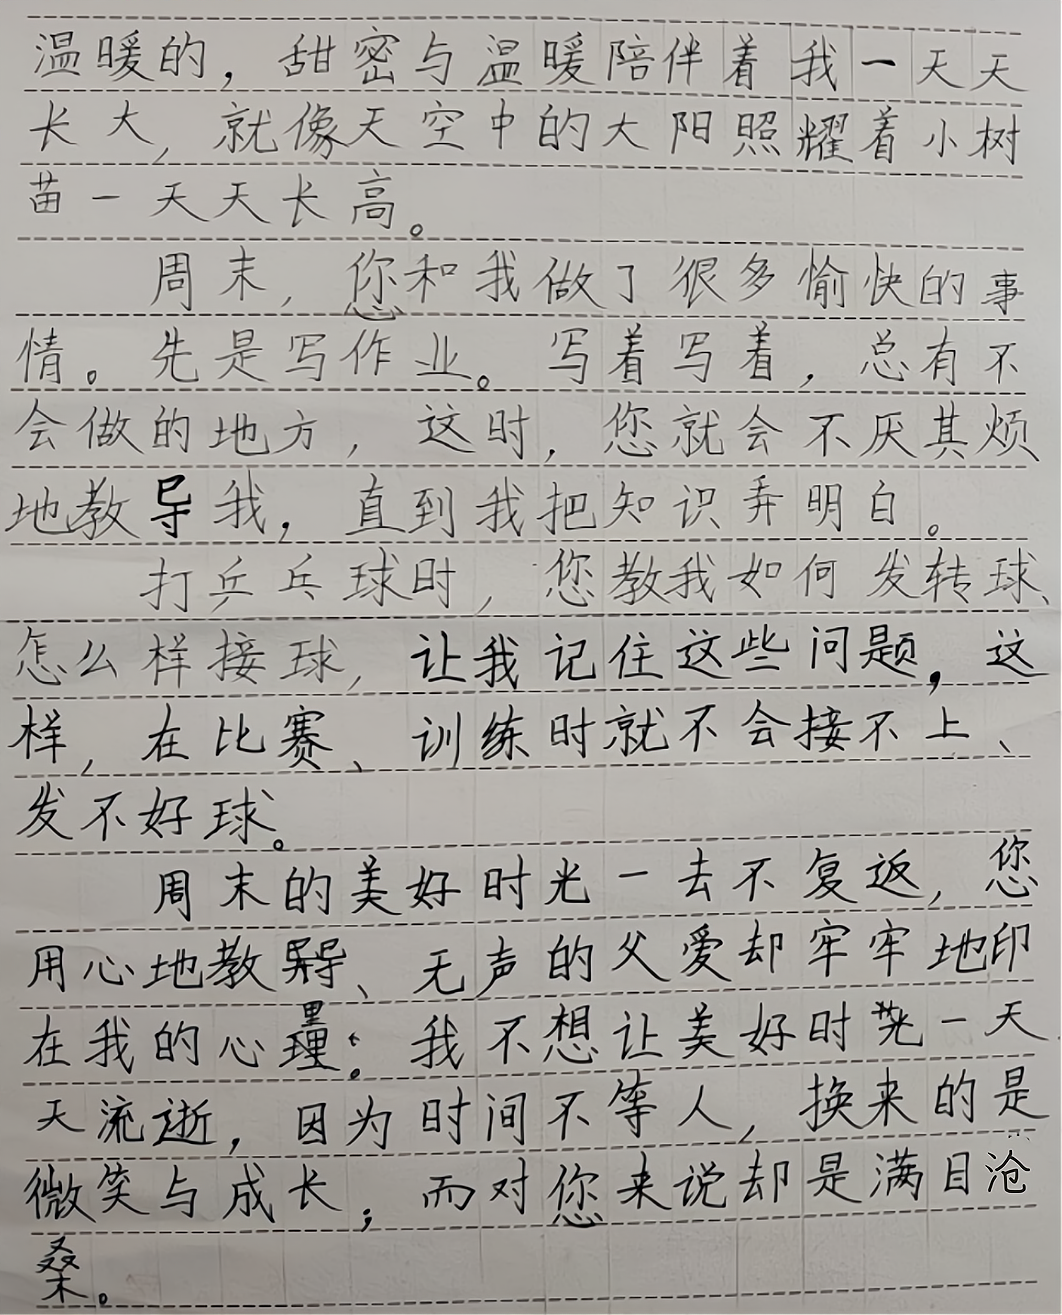 温暖的，甜密与温暖陪伴着我一天天
长大，就像天空中的大阳照耀着小树
苗一天天长高。
周末，您和我做了很多愉快的事
情。先是写作业。写着写着，总有不
会做的地方，这时，您就会不厌其烦
地教导我，直到我把知识弄明白。
打乒乓球时，您教我如何发转球、
怎么样接球，让我记住这些问题，这
样，在比赛、训练时就不会接不上、
发不好球。
周末的美好时光一去不复返，您
用心地教导、无声的父爱却牢牢地印
在我的心里。我不想让美好时光一天
天流逝，因为时间不等人，换来的是
微笑与成长；而对您来说却是满目沧
桑。